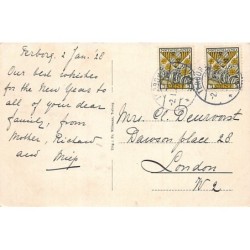 Terborg. 2 Jan. 28
Our best whishes
for the New Years to
all of your dear
family, from
Mother, Richard,
and Miep
Mrs. A. Deurvorst
Dawson place 28
London
W 2